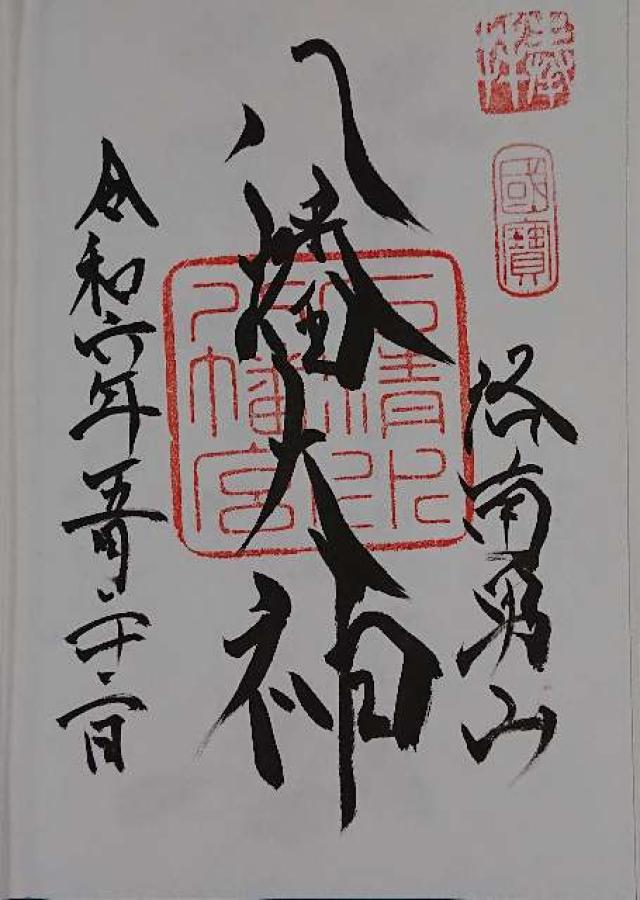 奉拝
國寶
洛南男山
八幡大神
石清水
八幡宮
令和六年五月二十二日